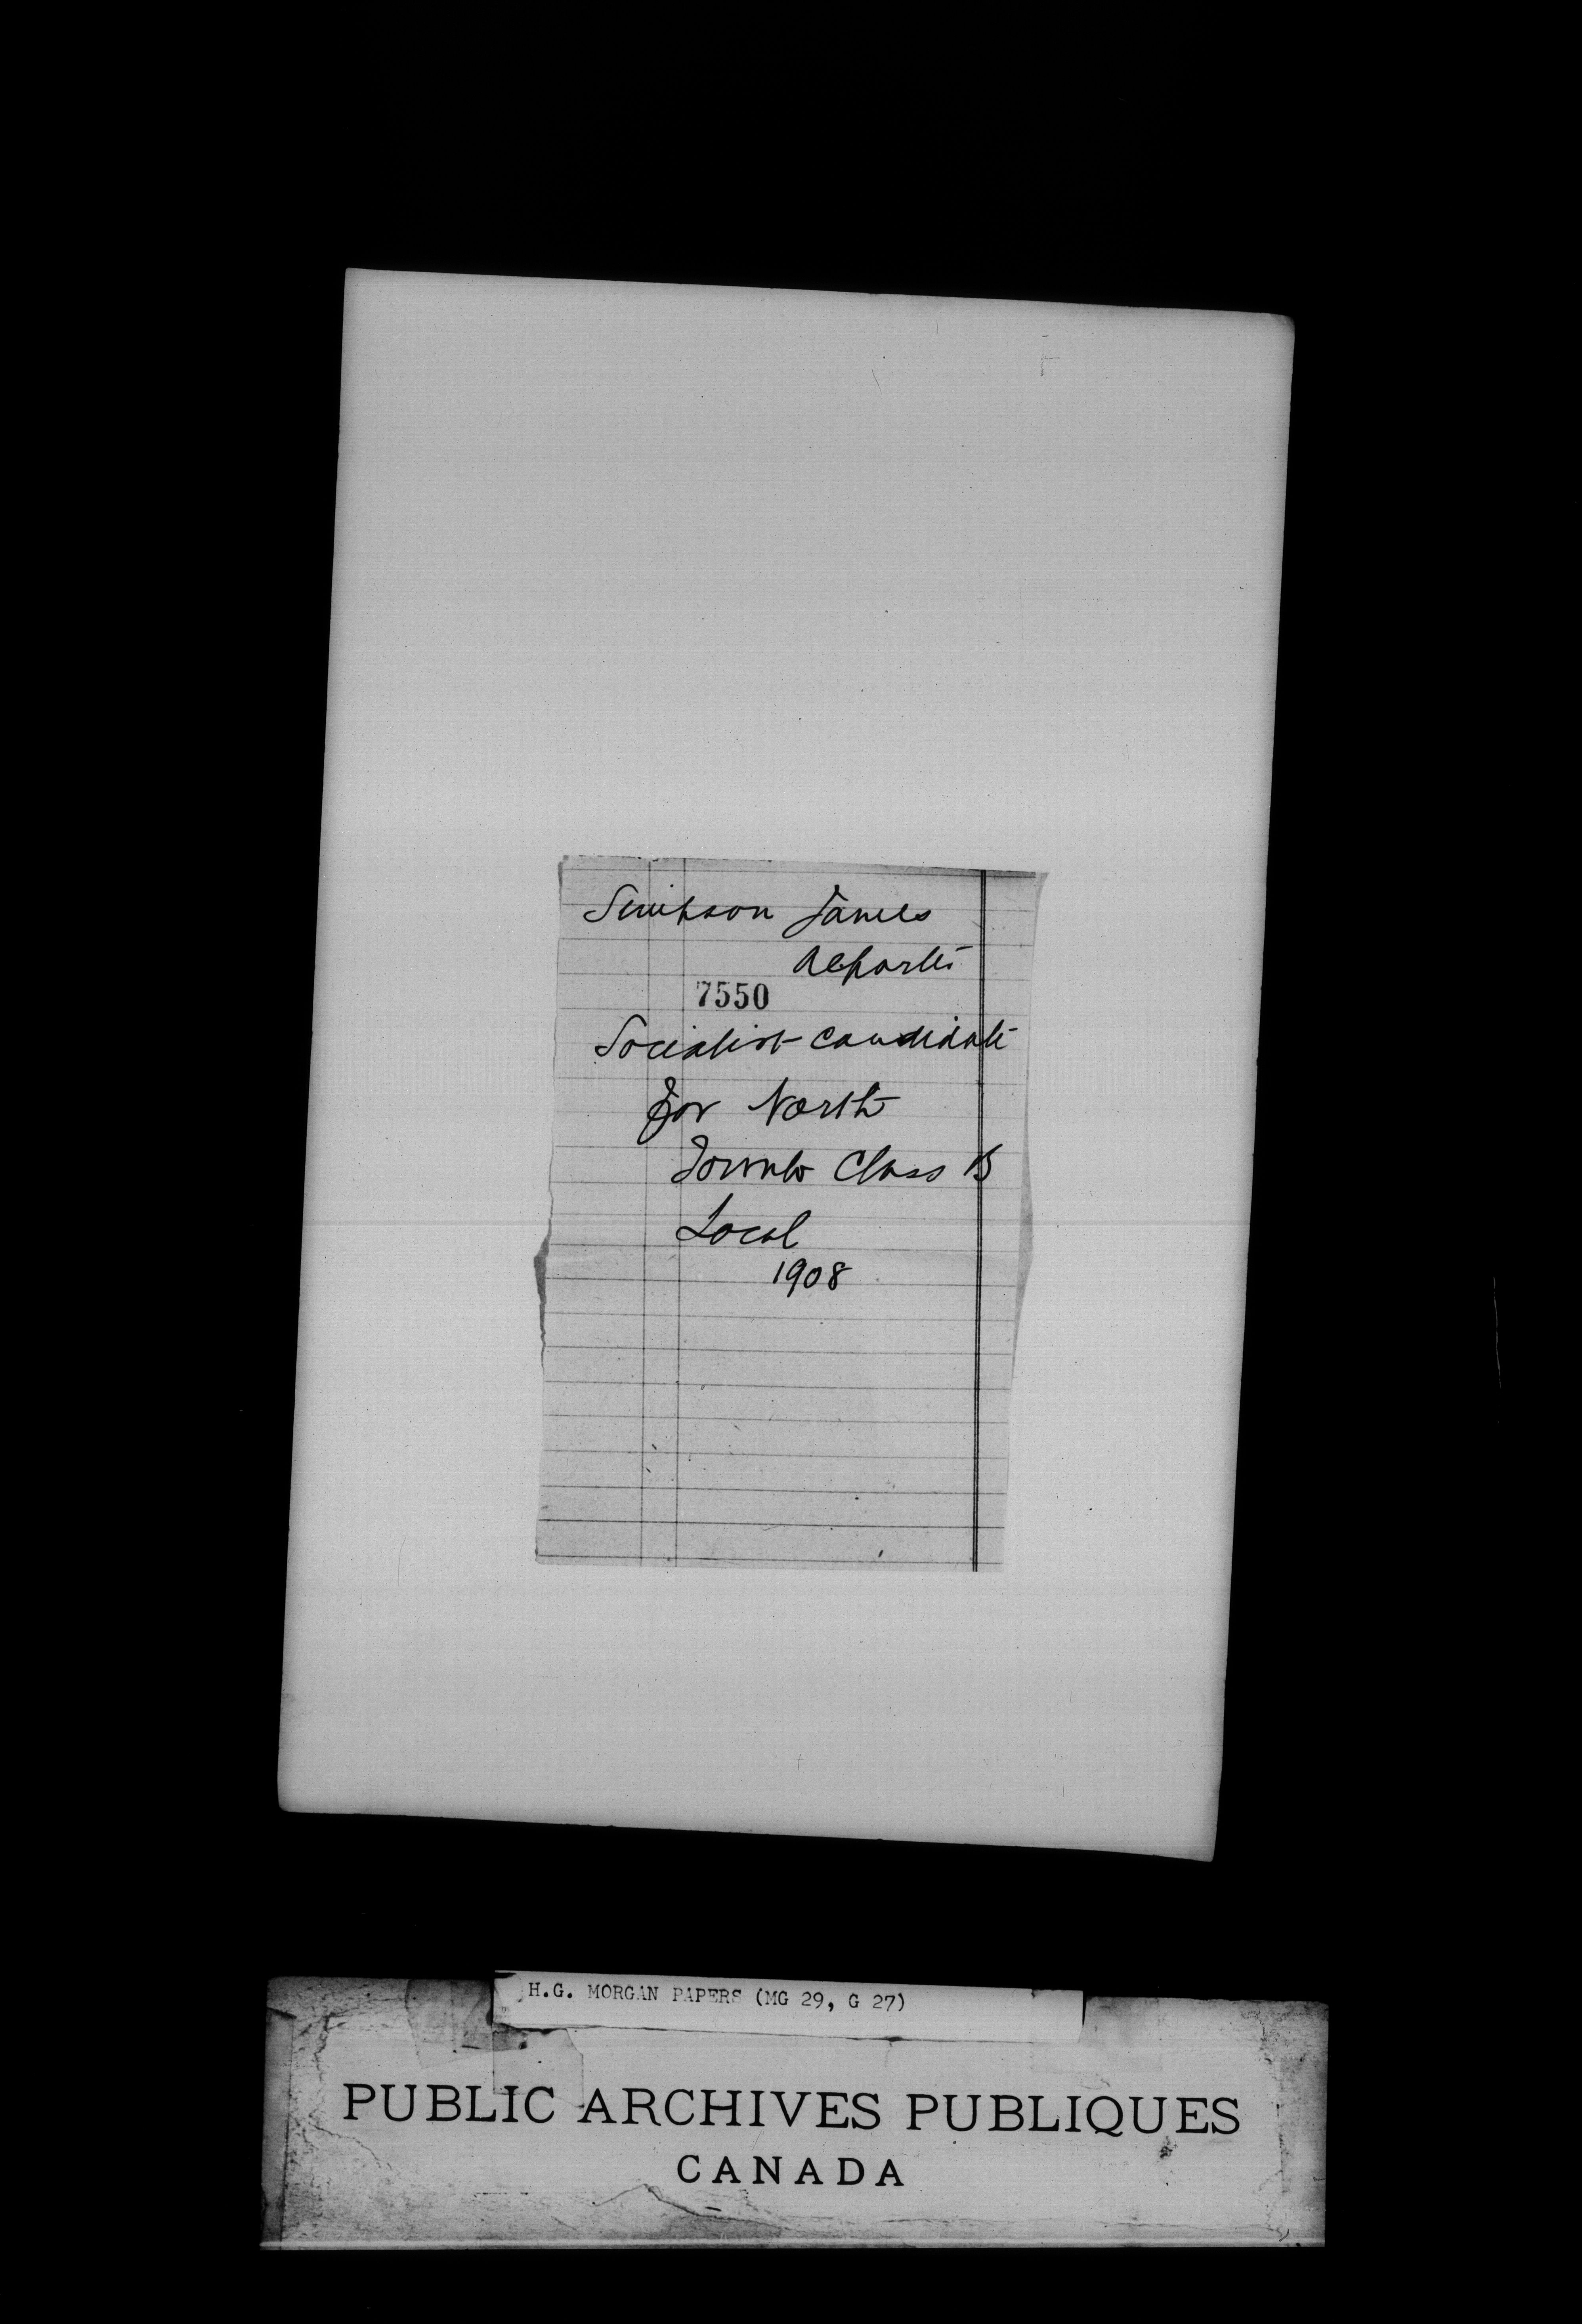 Simpson James
Reporter
7550
Socialist Candidate
for North
Toronto Class B
Local
1908
H.G. MORGAN PAPERS (MG 29, G 27)
PUBLIC ARCHIVES PUBLIQUES
CANADA